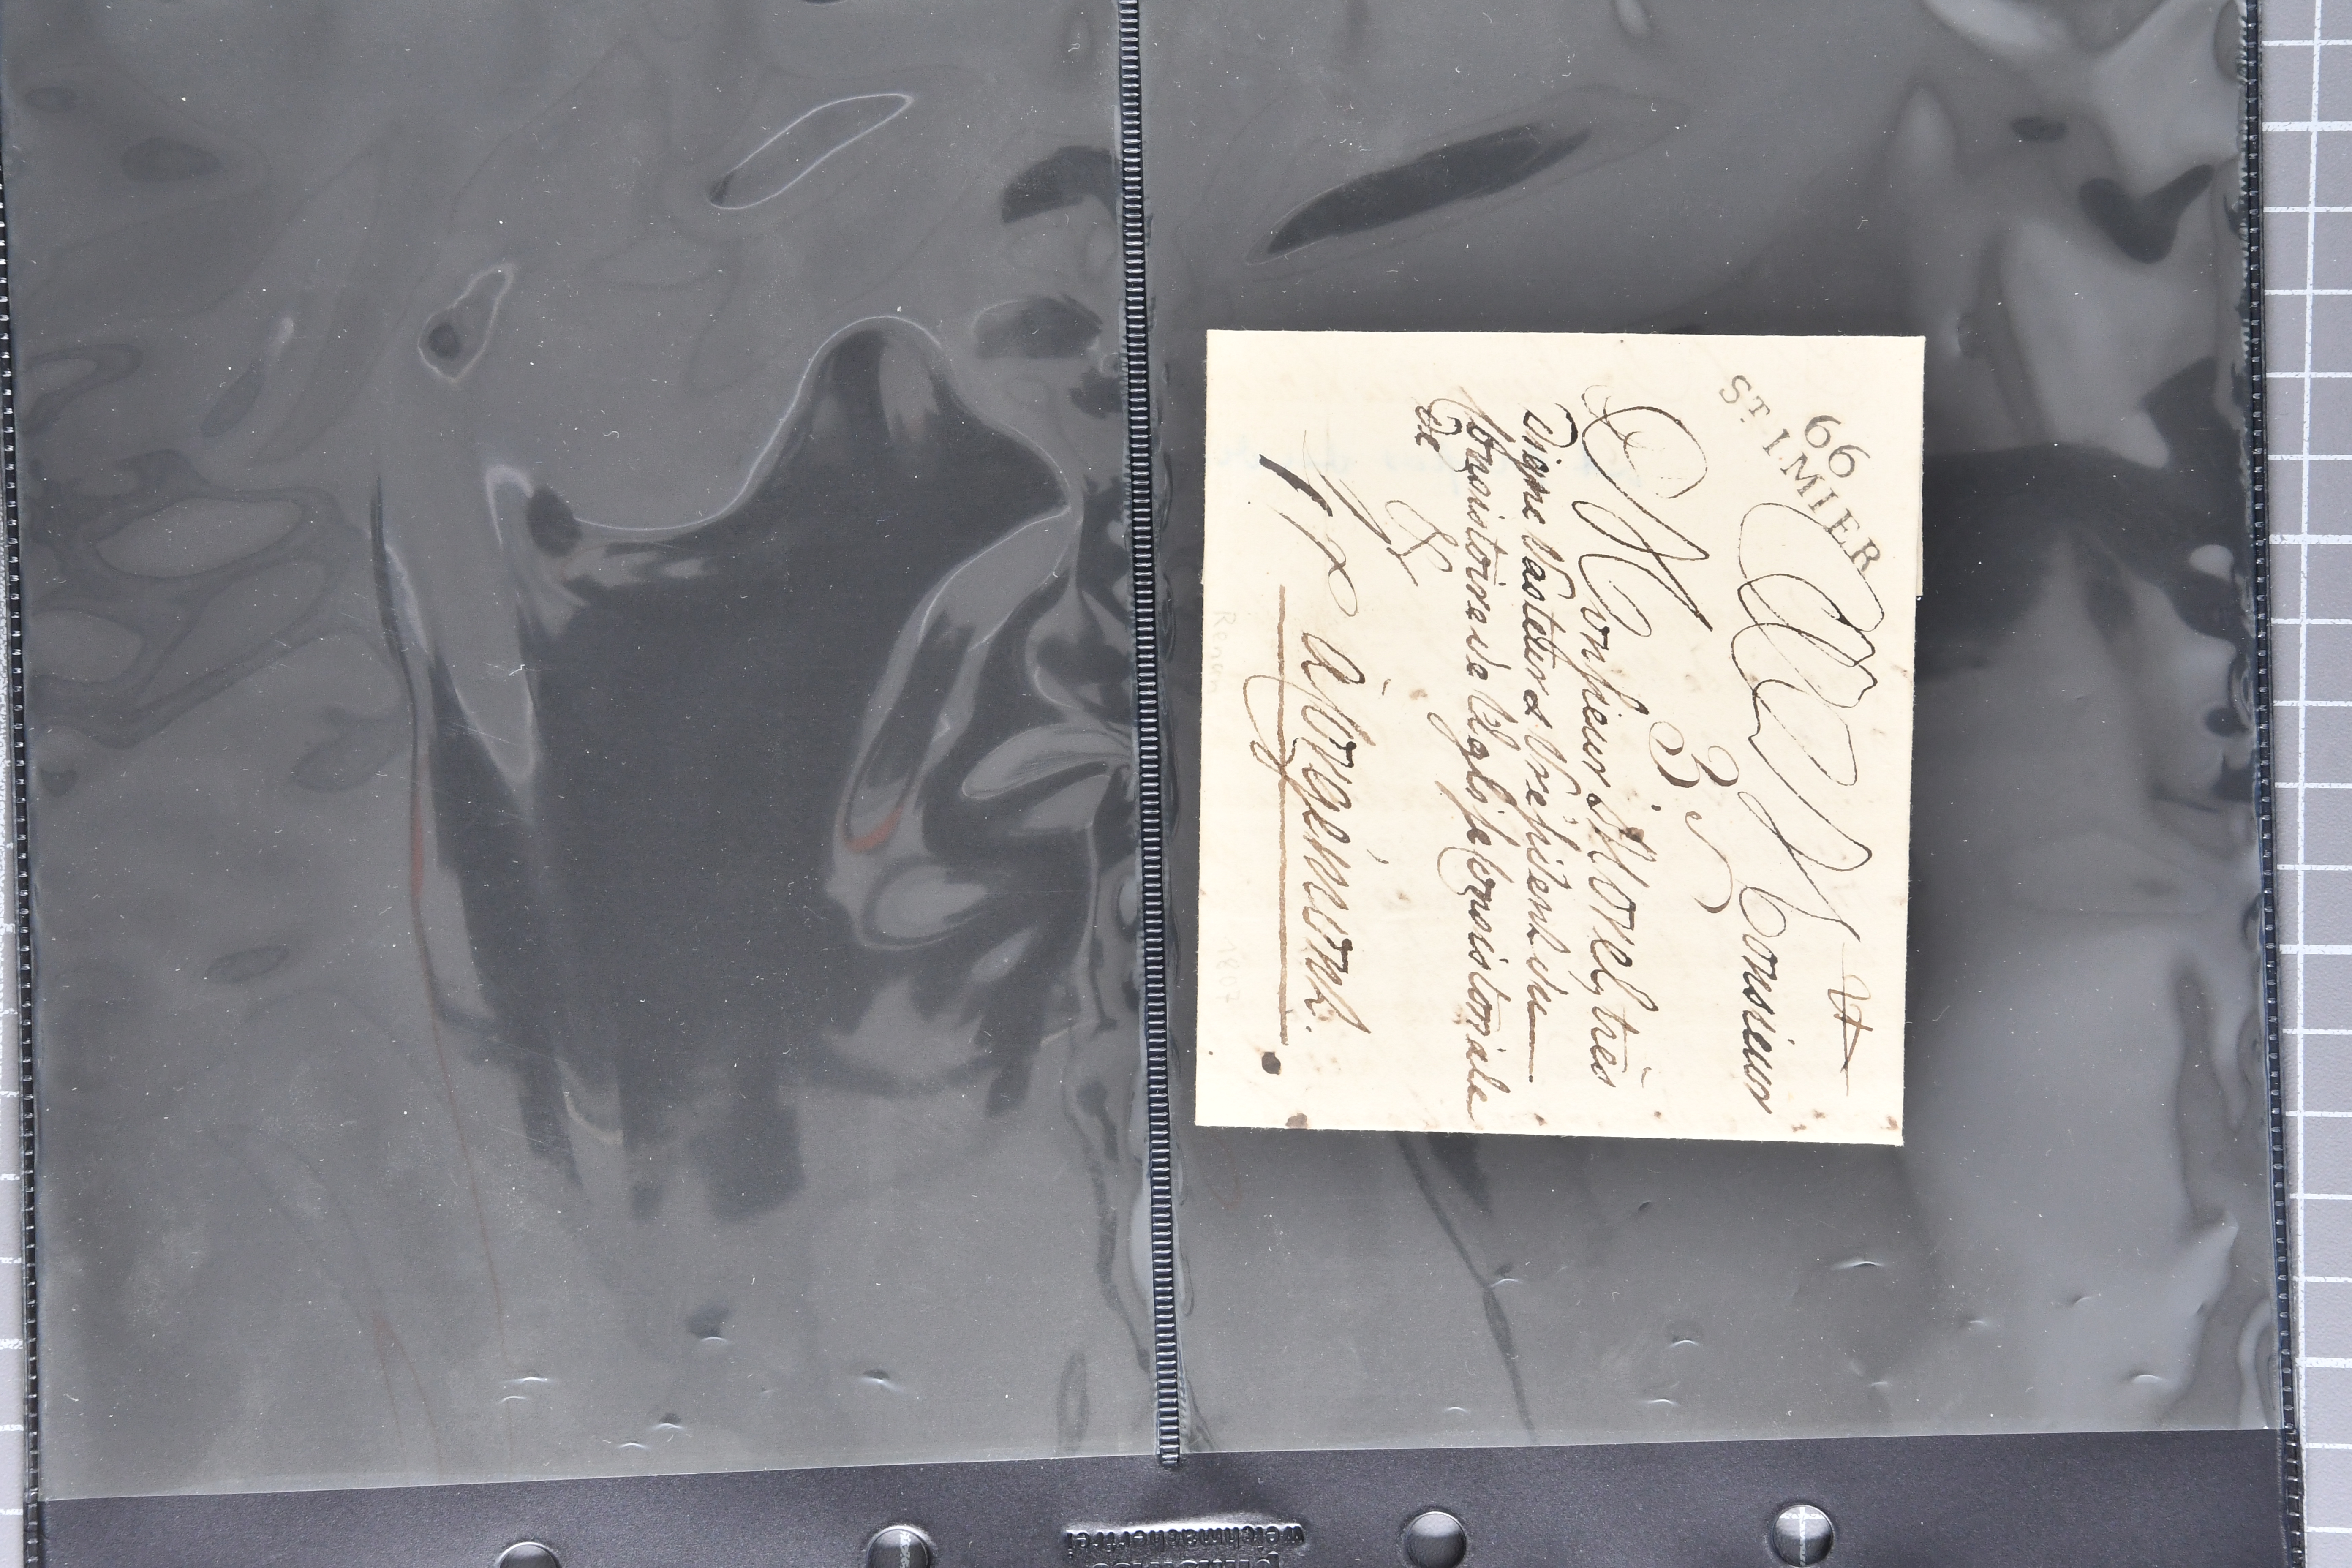 66
ST. IMIER
A Monsieur
3
Monsieur Morel, très
digne Pasteur & Président du
Consistoire de l'Eglise Consistoriale
de
à Corgémont.
Renan
1807
weichmacherfrei